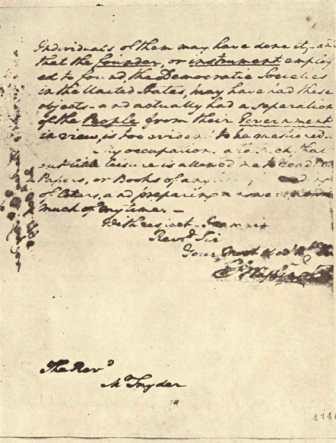 Individuals of them may have done it, and
that the founder, or instrument employ
ed to found, the Democratic Societies
in the United States, may have had these
objects - and actually had a separation
of the People from their Government
in view, is too evident to be questioned.
My occupations are such, that
but little leisure is allowed me to read News
Papers, or Books of any
of letters, and preparing
much of my time. -
With respect, I am
Revd Sir
Your Most Obed
Go Washington
The Revd
Mr Snyder